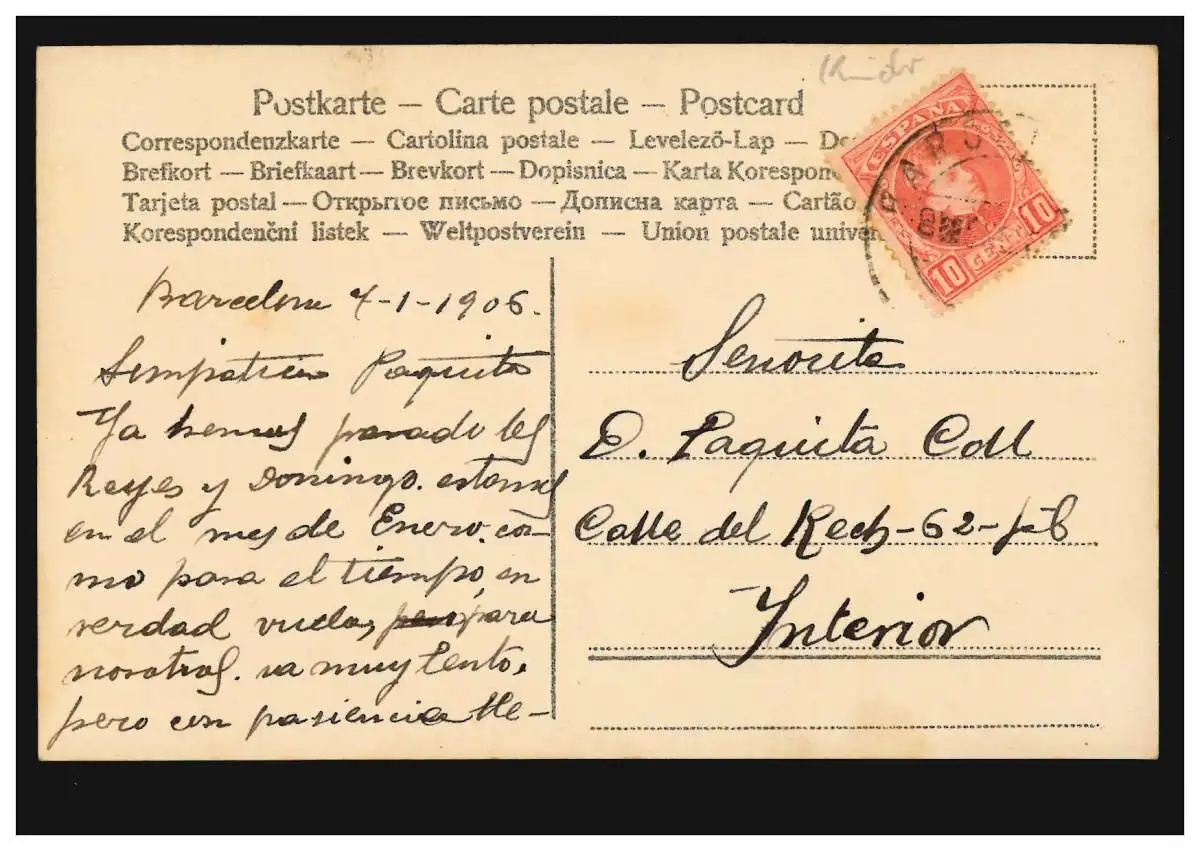 Postkarte – Carte postale – Postcard
Correspondenzkarte – Cartolina postale – Levelező-Lap –
Brefkort – Briefkaart – Brevkort – Dopisnica – Karta Korespon
Tarjeta postal – Открытое письмо – Дописна карта – Cartão
Korespondenční listek – Weltpostverein – Union postale univer
ESPAÑA
10
10
BAR
Barcelona 7-1-1906.
Simpatica Paquita
Ya hemos pasado los
Reyes y Domingo. estamos
en el mes de Enero. co-
mo pasa el tiempo, en
verdad vuela, para
nosotras. va muy lento.
pero con pasiencia lle-
Señorita
D. Paquita Coll
Calle del Rech-62-
Interior